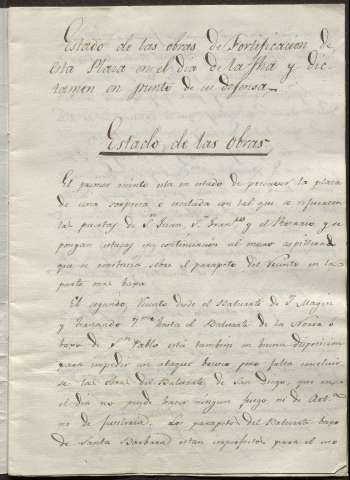 Estado de las obras de Fortificacion de
esta Plaza en el dia de la fha y dic-
tamen en punto de su defensa
Estado de las obras
El primer recinto esta en estado de preservar la plaza
de una sorpresa o escalada con tal que se refuercen
las puertas de Sn Juan, Sn Franco y el Rosario y se
pongan estacas en continuacion al muro aspillerado
que se construia sobre el parapeto del recinto en la
parte mas baja
El segundo recinto desde el Baluarte de Sn Magin
y hasta el Baluarte de la
bajo de Sn Pablo está tambien en buena disposicion
para impedir un ataque brusco pero falta concluir
se las obras del Baluarte de San Diego, que en
el dia no puede hacer ningun fuego ni de Art
ni de fusileria. Los parapetos del Baluarte bajo
de Santa Barbara estan imperfectos para el uso